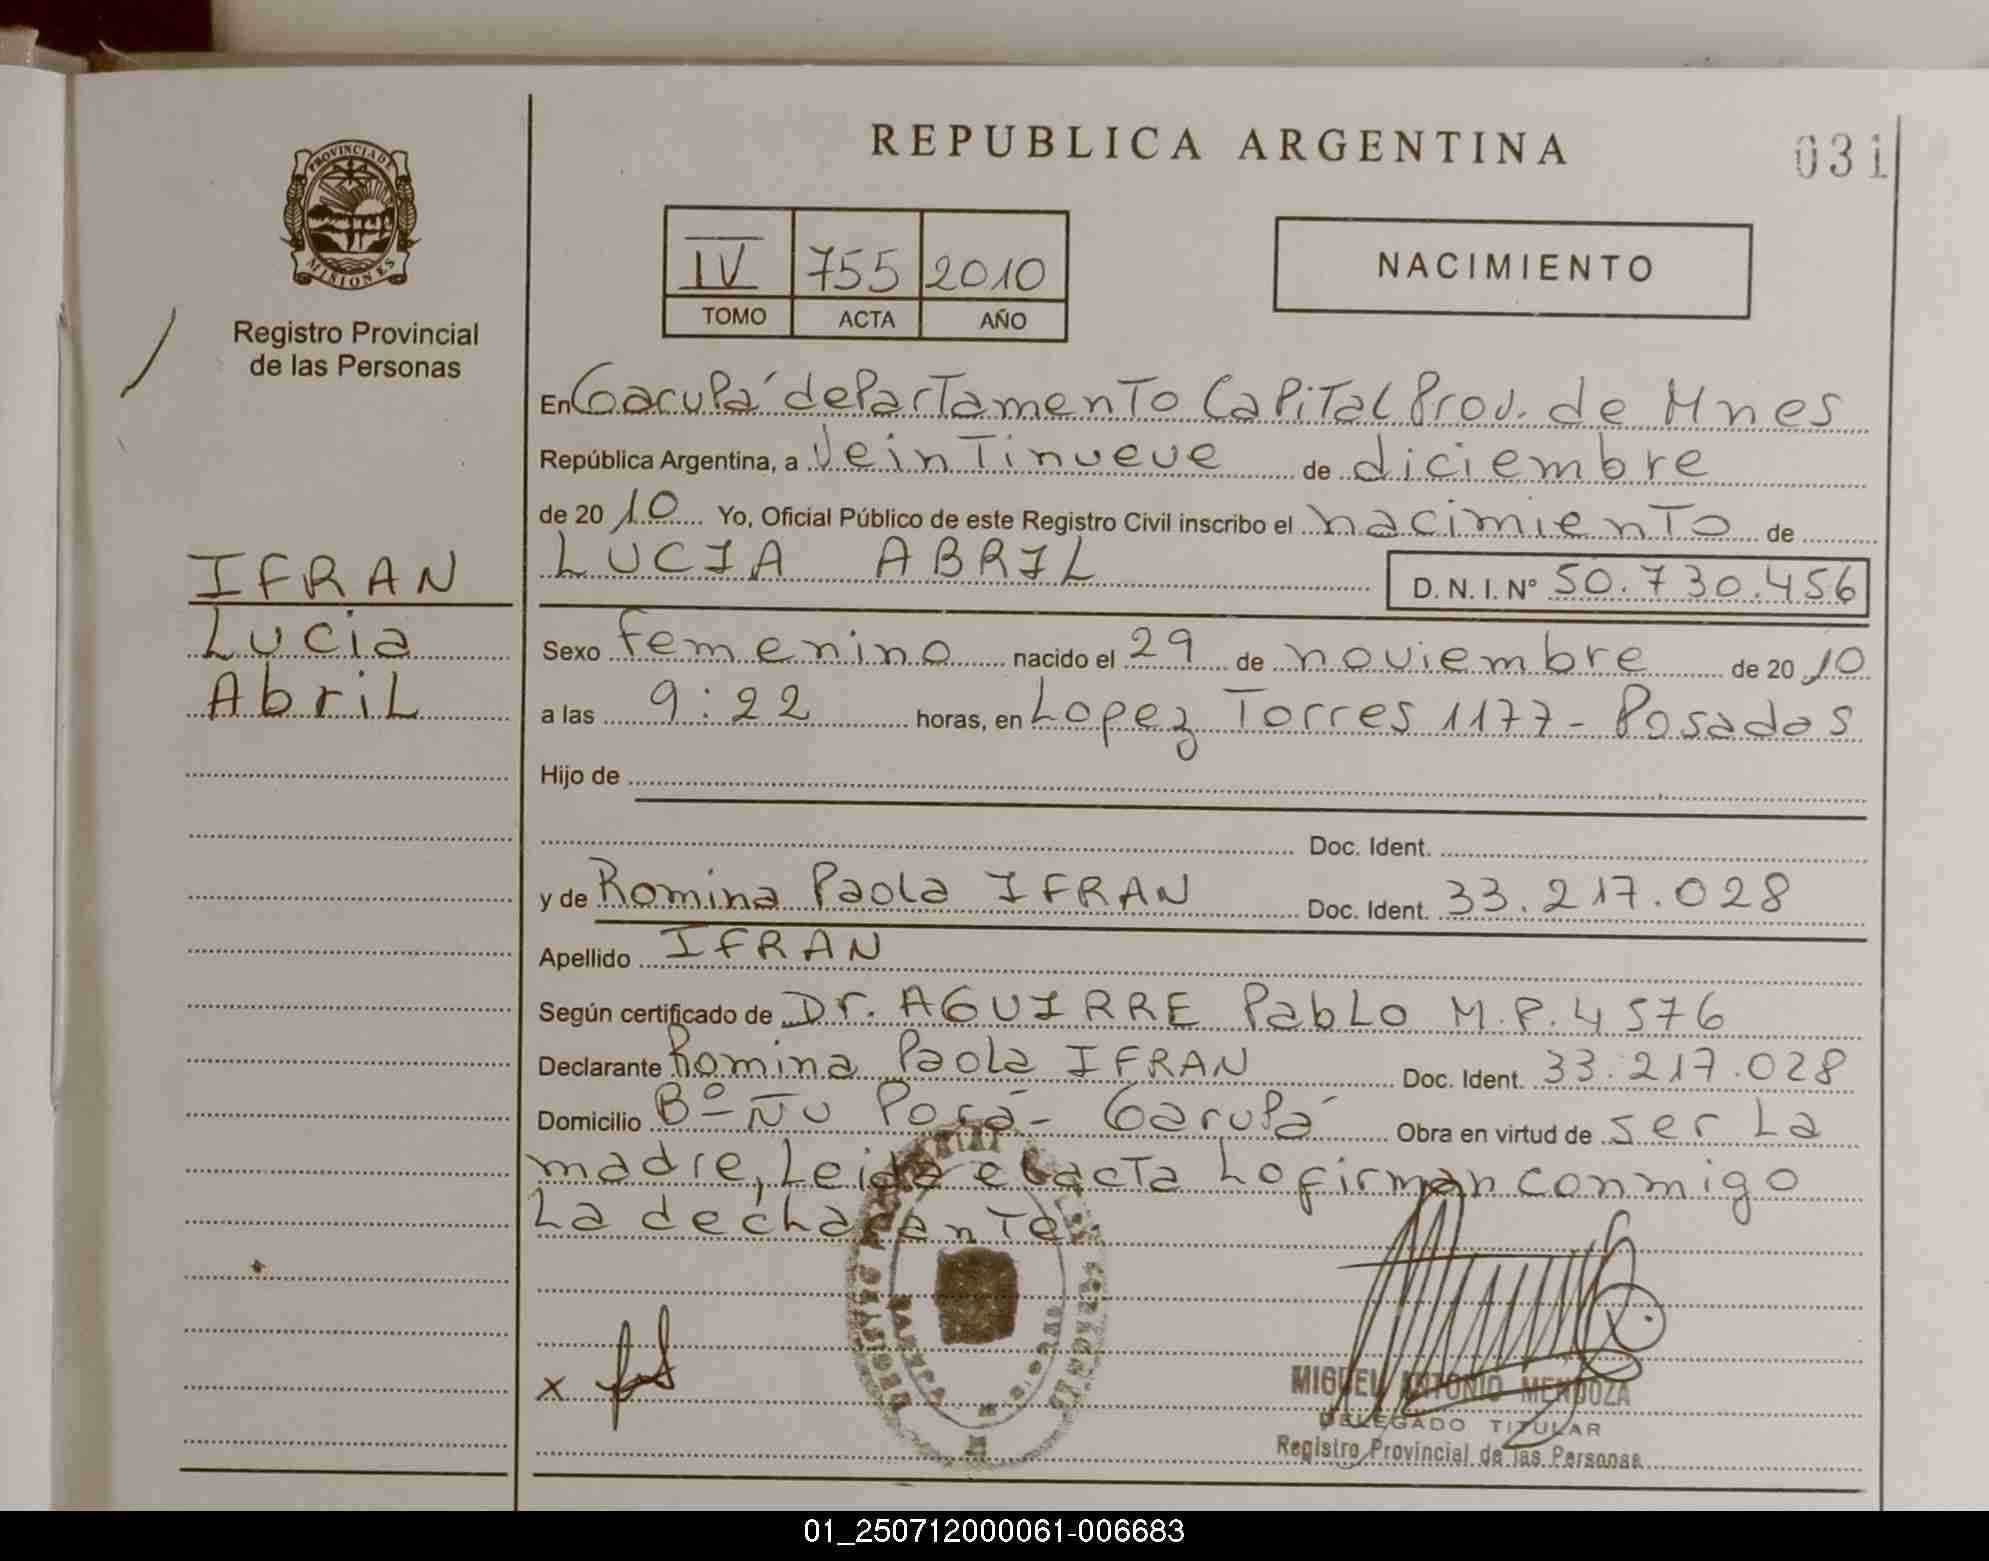 REPUBLICA ARGENTINA
031
PROVINCIA DE
MISIONES
Registro Provincial
de las Personas
IV 755 2010
TOMO ACTA AÑO
NACIMIENTO
En Garupá departamento Capital Prov. de Mnes
República Argentina, a Veintinueve de diciembre
de 2010 Yo, Oficial Público de este Registro Civil inscribo el nacimiento de
LUCIA ABRIL D. N. I. Nº 50.730.456
IFRAN
Lucia
Abril
Sexo femenino nacido el 29 de noviembre de 2010
a las 9:22 horas, en Lopez Torres 1177 - Posadas
Hijo de
Doc. Ident.
y de Romina Paola IFRAN Doc. Ident. 33.217.028
Apellido IFRAN
Según certificado de Dr. AGUIRRE Pablo M.P. 4576
Declarante Romina Paola IFRAN Doc. Ident. 33.217.028
Domicilio Bº Ñu Porá - Garupá Obra en virtud de ser La
madre, Leida el acta Lo firman conmigo
La decharante
x
MIGUEL ANTONIO MENDOZA
DELEGADO TITULAR
Registro Provincial de las Personas
01_250712000061-006683